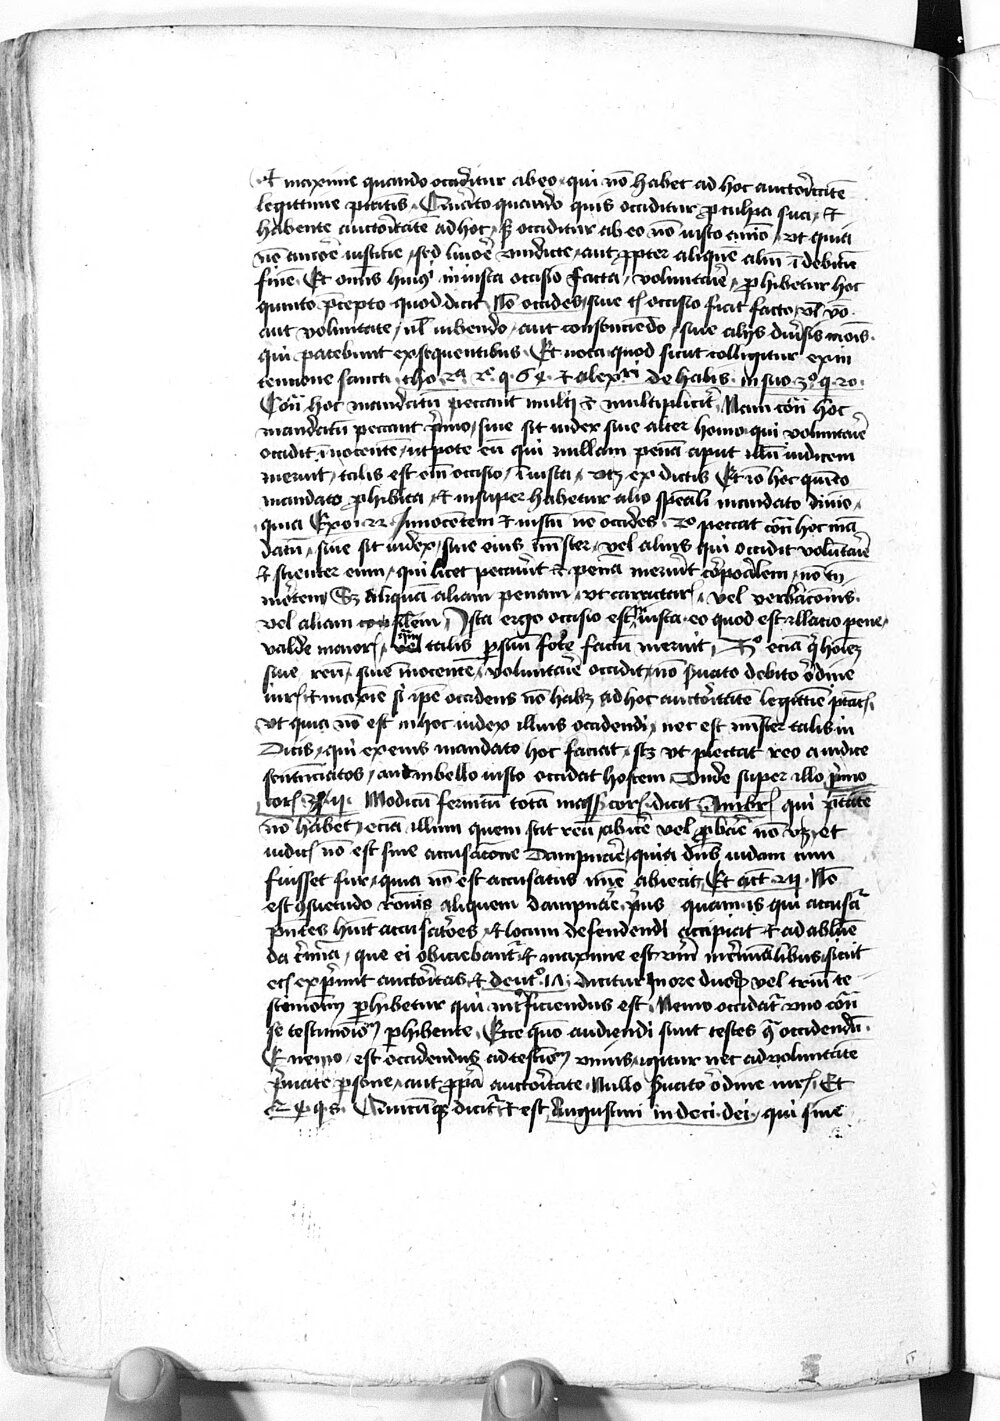 Et maxime quando occiditur ab eo qui nō habet ad hoc auctoritatē
legittime ptātis. Quarto quando quis occiditur pro culpa sua et
habente auctoritatē ad hoc, sed occiditur ab eo nō iusto aīo, vt quia
nō amore iusticie, sed liuore vindicte, aut propter aliquē aliū īdebitū
finē. Et omīs huiꝰ iniusta occisio facta, voluntarie, prohibetur hoc
quinto precepto quod dicit Nō occides, siue tal occisio fiat facto, vl vo
aut voluntate, vl iubendo, aut consenciēdo, siue alijs diuersis modis
qui patebunt ex sequentibus. Et nota quod sicut colligitur ex in
tencione sancti tho. 2a 2e q. 64 et alexandri de halis in suo 3o q.
Contra hoc mandatū peccant multi et multipliciter. Nam contra hoc
mandatū peccant primo, siue sit iudex siue alter homo qui voluntarie
occidit īnocentē, vtpote eū qui nullam penā aput illū iudicem
meruit, talis est enī occisio, īiusta, vt patet ex dictis Et iō hoc quinto
mandato prohibita, et insuper habetur alio speciali mandato diuīo,
quia Exo. Innocentem et iustū ne occides. 2o peccat contra hoc mā
datū, siue sit iudex, siue eius minister, vel alius qui occidit voluntarie
et scienter eum, qui licet peccauerit et penā meruerit corporalem, nō tn
mortem Sed aliquam aliam penam, vt carceris, vel verberacōnis
vel aliam consilem, Ista ergo occisio est iniusta, eo quod est illacio pene,
valde maioris, quam talis per suū forte factū meruit, 3o eciā qui hoīeʒ
siue reū, siue īnocentē, voluntarie occidit, nō seruato debito ordine
iuris et maxime si ipe occidens nō habet ad hoc auctoritatē legittime ptātis
vt quia nō est in hoc iudex illius occidendi, nec est minister talis iu
dicis, qui ex eius mandato hoc faciat, scʒ vt plectat reo a iudice
sentenciatos, aut in bello iusto occidat hostem Unde super illo primo
cor. Modicū fermētū totā massā cor. dicit Ambr. qui ptātē
nō habet, eciā illum quem scit reū, abicere vel probare nō valet, et
iudicis nō est sine accusatione dampnare, quia dn̄s iudam cum
fuisset fur, quia nō est accusatus mīe abiecit, Et act. Nō
est consuetudo romīs aliquem dampnare, prius quam is qui accusatur
presentes habeat accusatores, et locum defendendi accipiat et ad abluē
da crimīa, que ei obiciebantur, et maxime est verum in criminalibus, sicut
exprimit auctoritas, et deut. dicitur In ore duorum vel trium te
stimonium perhibetur qui interficiendus est. Nemo occidatur vno contra
se testimoniū perhibente, Ecce quō audiendi sunt testes contra occidendū
Et nemo, est occidendus ad testimoniū vnius, igitur nec ad voluntatē
priuate persone, aut propria auctoritate Nullo seruato ordine iuris, Et
Quicunque dicitur et est Augustini in de ci. dei, qui sine